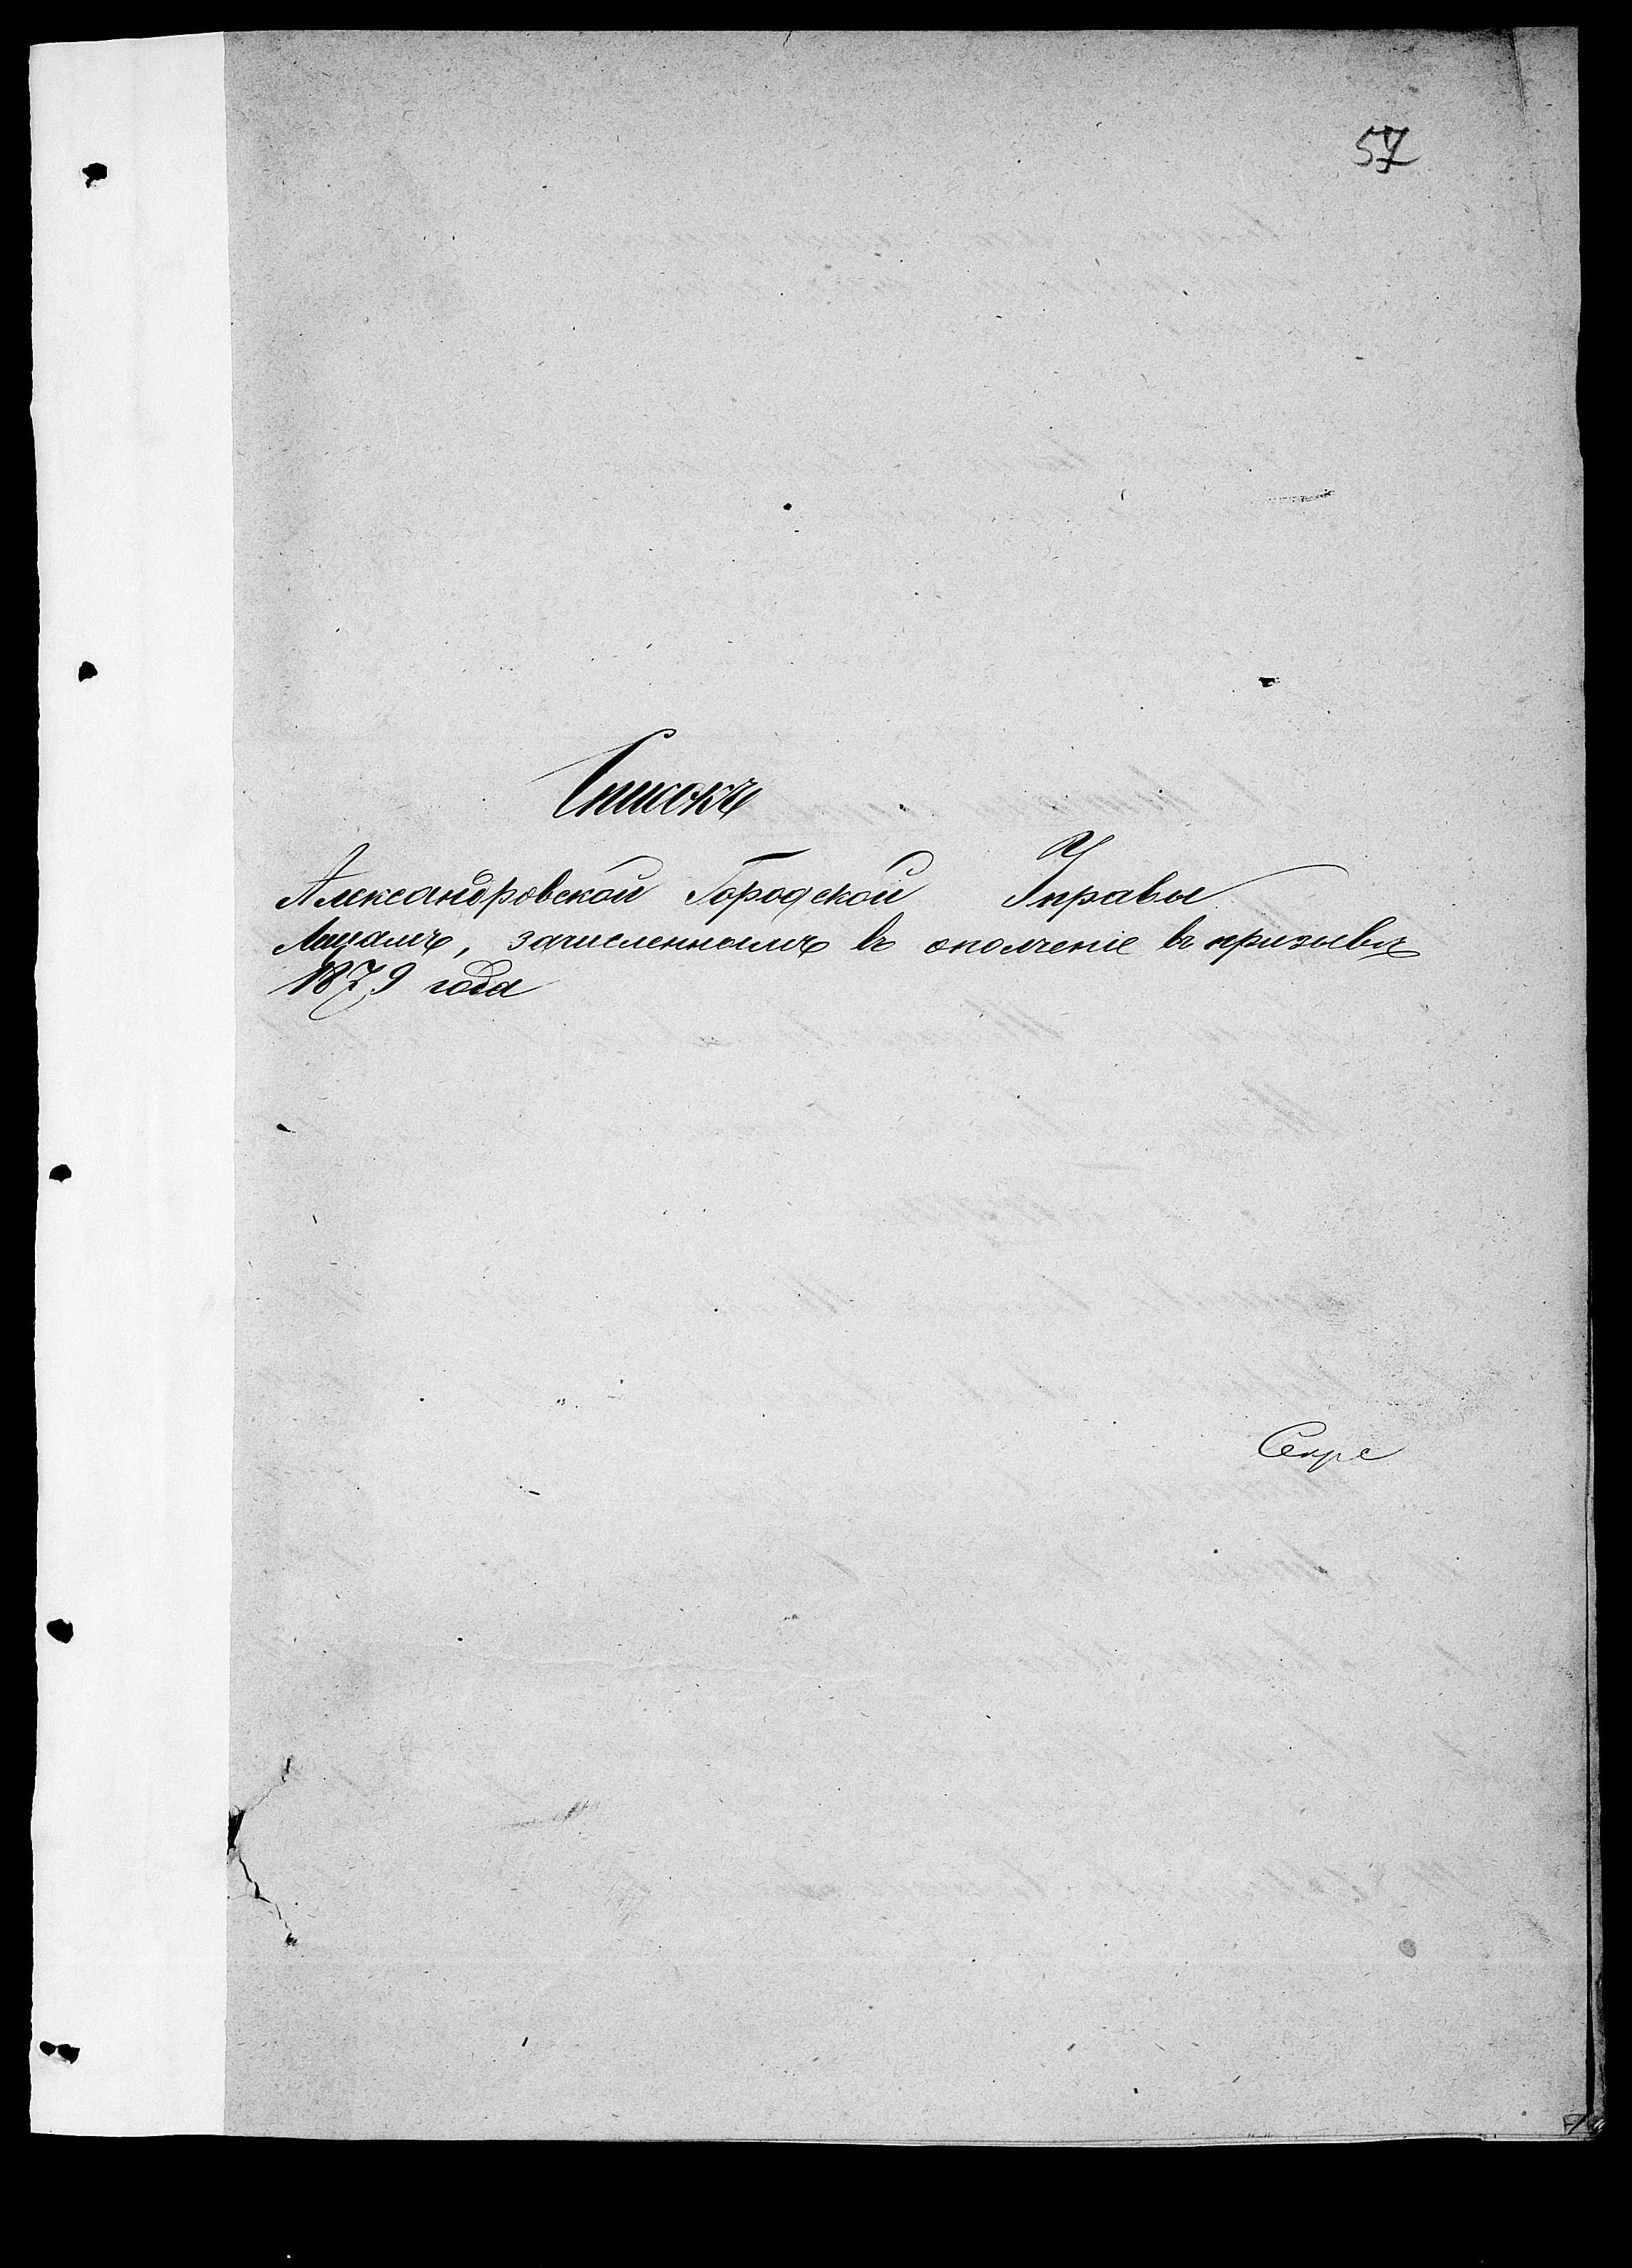 57
Списокъ
Александровской Городской Управы
Лицамъ, зачисленнымъ въ ополченіе въ призывъ
1879 года
Секре